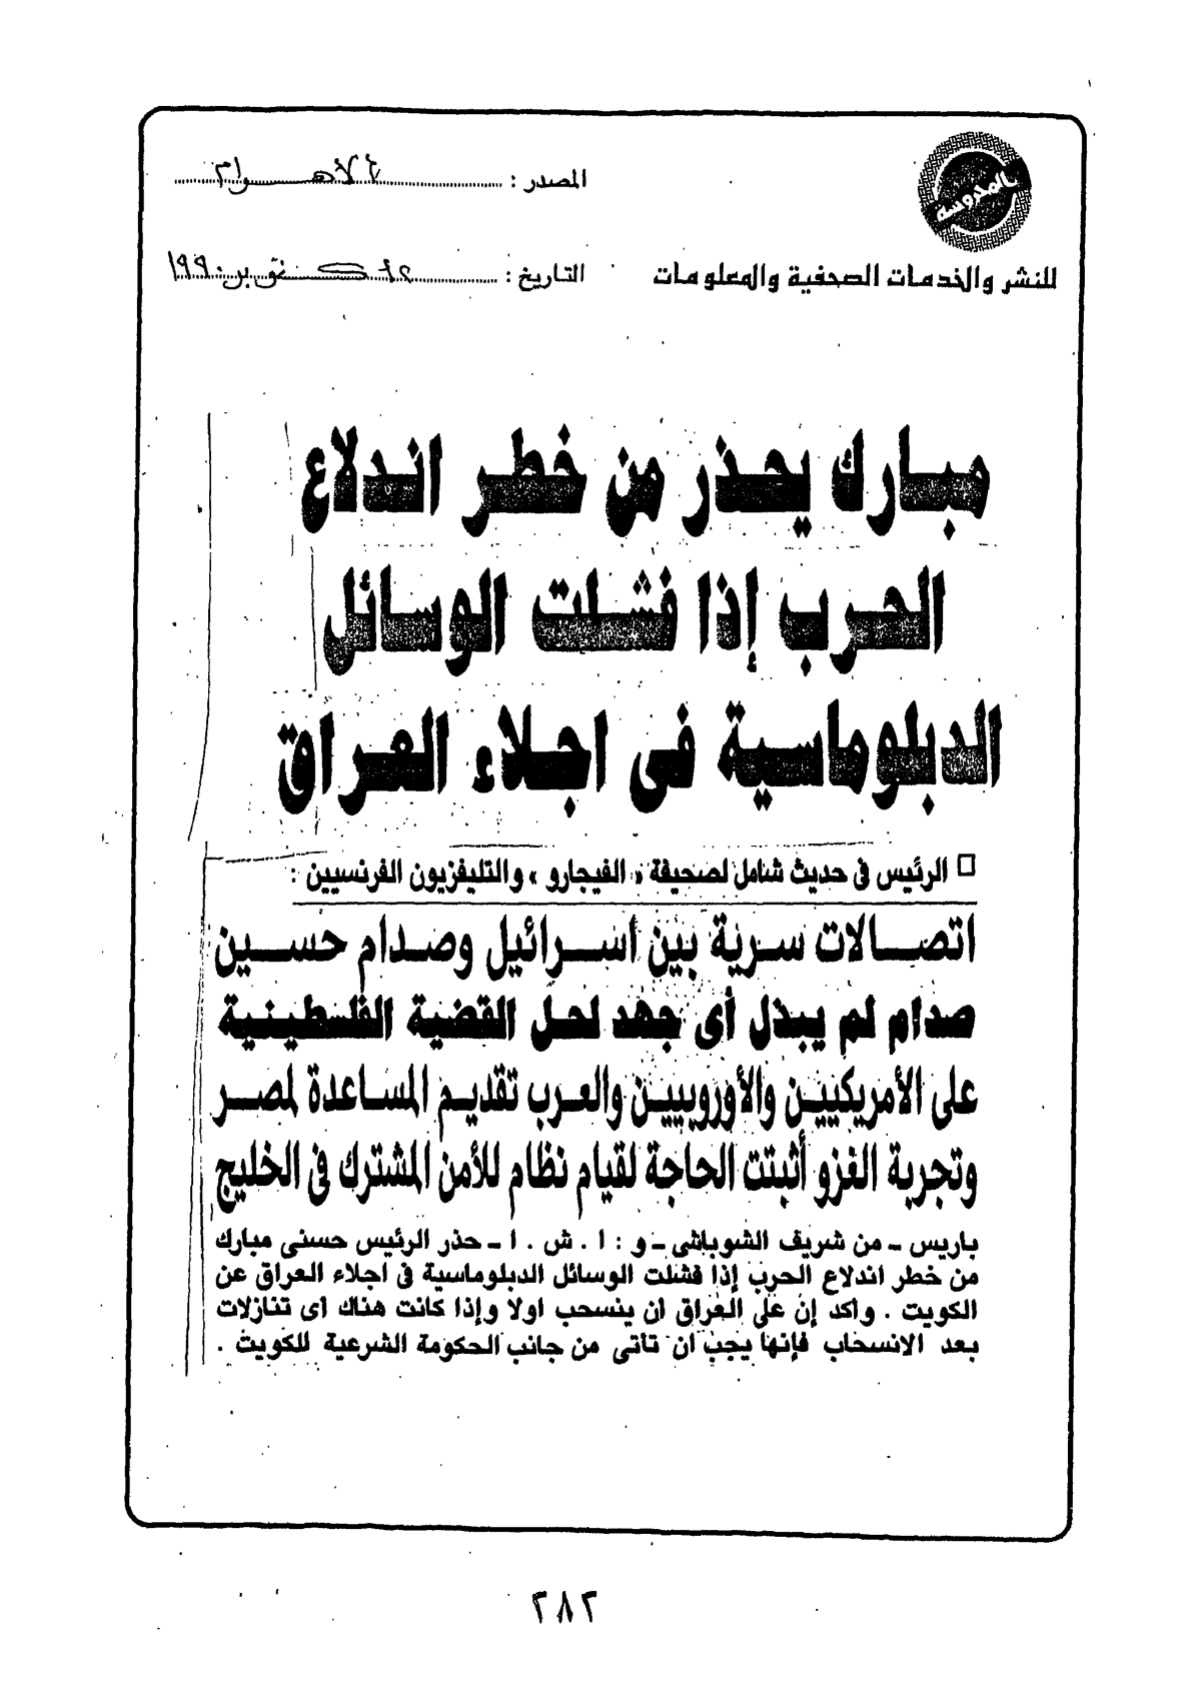 بالمحروسة
للنشر والخدمات الصحفية والمعلومات
المصدر : الأهرام
التاريخ : أكتوبر ١٩٩٠
مبارك يحذر من خطر اندلاع
الحرب إذا فشلت الوسائل
الدبلوماسية فى اجلاء العراق
□ الرئيس فى حديث شامل لصحيفة « الفيجارو » والتليفزيون الفرنسيين :
اتصالات سرية بين اسرائيل وصدام حسين
صدام لم يبذل أى جهد لحل القضية الفلسطينية
على الأمريكيين والأوروبيين والعرب تقديم المساعدة لمصر
وتجربة الغزو أثبتت الحاجة لقيام نظام للأمن المشترك فى الخليج
باريس ـ من شريف الشوباشى ـ و : ا . ش . ا ـ حذر الرئيس حسنى مبارك
من خطر اندلاع الحرب إذا فشلت الوسائل الدبلوماسية فى اجلاء العراق عن
الكويت . وأكد إن على العراق أن ينسحب اولا وإذا كانت هناك أى تنازلات
بعد الانسحاب فإنها يجب أن تأتى من جانب الحكومة الشرعية للكويت .
٢٨٢